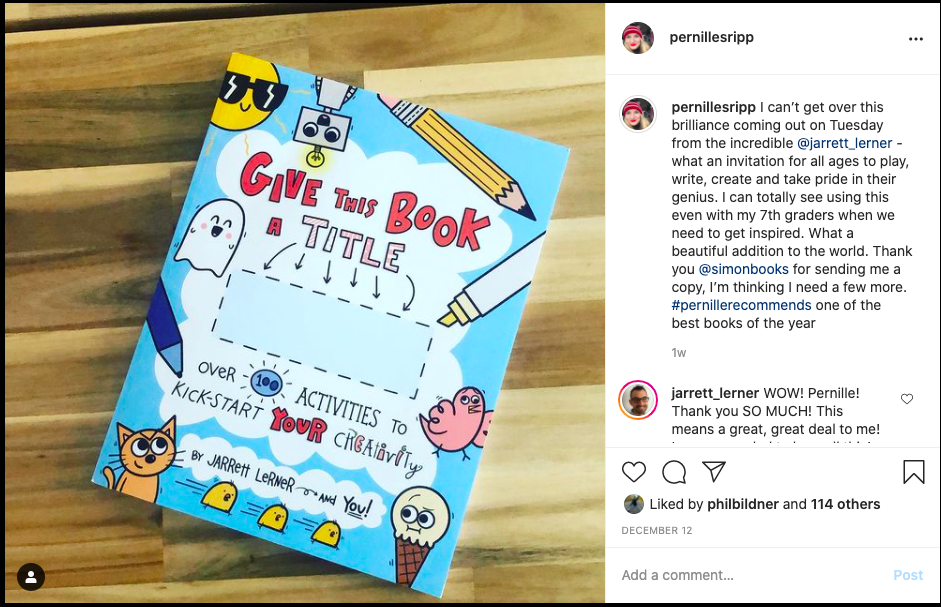 GIVE THIS BOOK
A TITLE
OVER 100 ACTIVITIES TO
KICK-START YOUR CREATIVITY
BY JARRETT LERNER AND YOU!
pernillesripp
pernillesripp I can't get over this
brilliance coming out on Tuesday
from the incredible @jarrett_lerner -
what an invitation for all ages to play,
write, create and take pride in their
genius. I can totally see using this
even with my 7th graders when we
need to get inspired. What a
beautiful addition to the world. Thank
you @simonbooks for sending me a
copy, I'm thinking I need a few more.
#pernillerecommends one of the
best books of the year
1w
jarrett_lerner WOW! Pernille!
Thank you SO MUCH! This
means a great, great deal to me!
Liked by philbildner and 114 others
DECEMBER 12
Add a comment...
Post